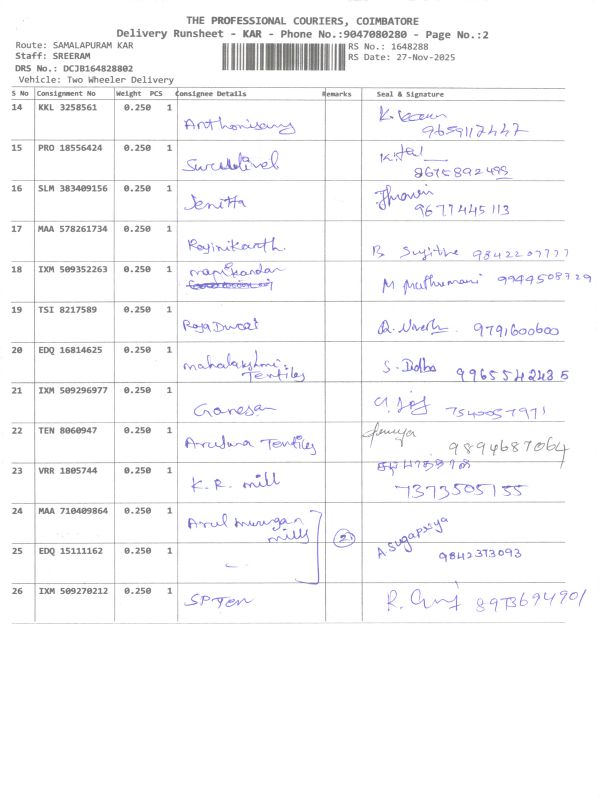 THE PROFESSIONAL COURIERS, COIMBATORE
Delivery Runsheet - KAR - Phone No.:9047080280 - Page No.:2
Route: SAMALAPURAM KAR
RS No.: 1648288
Staff: SREERAM
RS Date: 27-Nov-2025
DRS No.: DCJB164828802
Vehicle: Two Wheeler Delivery
S No Consignment No Weight PCS Consignee Details Remarks Seal & Signature
14 KKL 3258561 0.250 1
Anthonisamy
9659117447
15 PRO 18556424 0.250 1
8675892495
16 SLM 383409156 0.250 1
Jenitta
9677445113
17 MAA 578261734 0.250 1
Rajinikanth. B 9842207777
18 IXM 509352263 0.250 1 manikandan
M Muthumani 9944508729
19 TSI 8217589 0.250 1
Raja Durai 9791600600
20 EDQ 16814625 0.250 1
mahalakshmi Textiles S. 9965542435
21 IXM 509296977 0.250 1
Ganesan 7540057971
22 TEN 8060947 0.250 1
Textiles 9894687064
23 VRR 1805744 0.250 1
K.R. mill 7373505155
24 MAA 710409864 0.250 1
Arul murugan mills 2
25 EDQ 15111162 0.250 1
A Sugapriya 9842373093
26 IXM 509270212 0.250 1
SPTex R. 8973694901